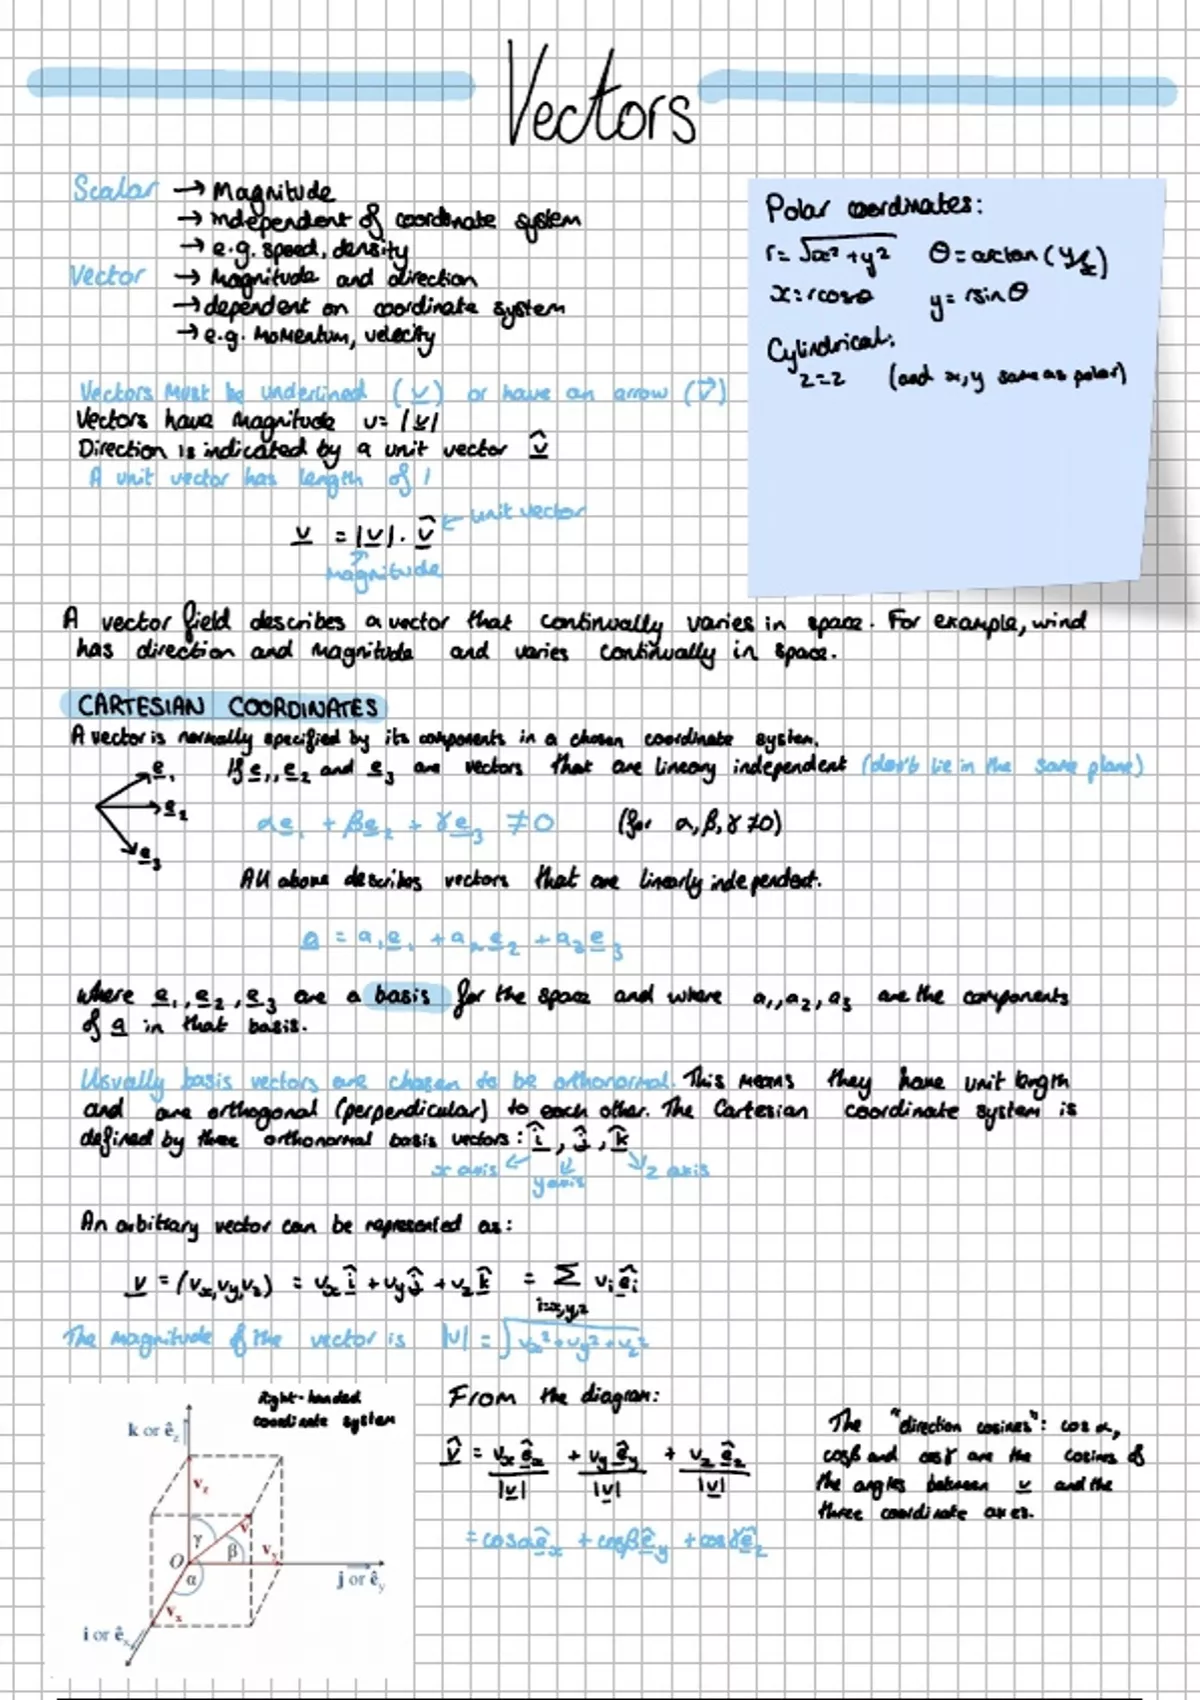 Vectors
Scalar → Magnitude
→ independent of coordinate system
→ e.g. speed, density
Vector → Magnitude and direction
→ dependent on coordinate system
→ e.g. Momentum, velocity
Polar coordinates:
r = √x² + y² θ = arctan (y/x)
x = rcosθ y = rsinθ
Cylindrical:
z = z (and x, y same as polar)
Vectors must be underlined (v) or have an arrow (v⃗)
Vectors have magnitude v = |v|
Direction is indicated by a unit vector v̂
A unit vector has length of 1
v = |v| . v̂ ← unit vector
magnitude
A vector field describes a vector that continually varies in space. For example, wind
has direction and magnitude and varies continually in space.
CARTESIAN COORDINATES
A vector is normally specified by its components in a chosen coordinate system.
e₁ If e₁, e₂ and e₃ are vectors that are lineary independent (don't lie in the same plane)
e₂
αe₁ + βe₂ + γe₃ ≠ 0 (for α, β, γ ≠ 0)
e₃
All above describes vectors that are linearly independent.
a = a₁e₁ + a₂e₂ + a₃e₃
where e₁, e₂, e₃ are a basis for the space and where a₁, a₂, a₃ are the components
of a in that basis.
Usually basis vectors are chosen to be orthonormal. This means they have unit length
and are orthogonal (perpendicular) to each other. The Cartesian coordinate system is
defined by three orthonormal basis vectors: î, ĵ, k̂
x axis y axis z axis
An arbitrary vector can be represented as:
v = (vₓ, vy, vz) = vₓî + vyĵ + vzk̂ = Σ vᵢêᵢ
i=x,y,z
The magnitude of the vector is |v| = √vₓ² + vy² + vz²
Right-handed
coordinate system
k or êz
vz
v
γ
β
vy
O
α
j or êy
vₓ
i or êₓ
From the diagram:
v̂ = vₓêₓ/|v| + vyêy/|v| + vzêz/|v|
= cosαêₓ + cosβêy + cosγêz
The "direction cosines": cos α,
cosβ and cosγ are the cosines of
the angles between v and the
three coordinate axes.